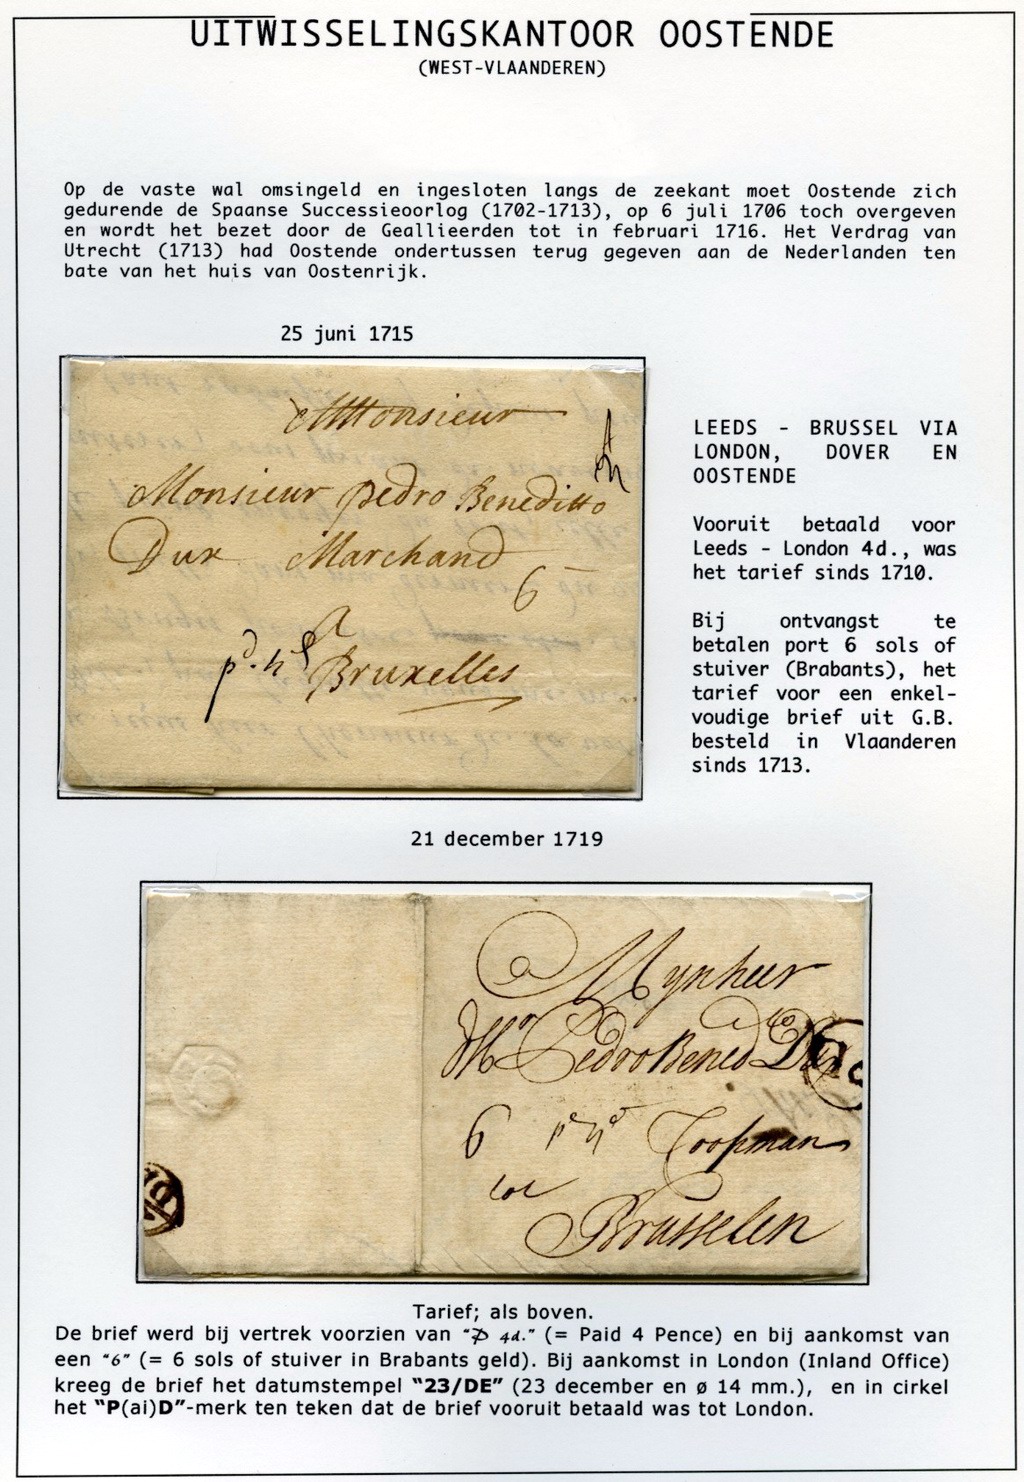 UITWISSELINGSKANTOOR OOSTENDE
(WEST-VLAANDEREN)
Op de vaste wal omsingeld en ingesloten langs de zeekant moet Oostende zich
gedurende de Spaanse Successieoorlog (1702-1713), op 6 juli 1706 toch overgeven
en wordt het bezet door de Geallieerden tot in februari 1716. Het Verdrag van
Utrecht (1713) had Oostende ondertussen terug gegeven aan de Nederlanden ten
bate van het huis van Oostenrijk.
25 juni 1715
Monsieur
Monsieur Pedro Beneditto
Dux Marchand
6
a
pd. 4d
Bruxelles
LEEDS - BRUSSEL VIA
LONDON, DOVER EN
OOSTENDE
Vooruit betaald voor
Leeds - London 4d., was
het tarief sinds 1710.
Bij ontvangst te
betalen port 6 sols of
stuiver (Brabants), het
tarief voor een enkel-
voudige brief uit G.B.
besteld in Vlaanderen
sinds 1713.
21 december 1719
Mynheer
Mr Pedro Bened to Dux
6 pd 4d Coopman
tot
Brusselen
Tarief; als boven.
De brief werd bij vertrek voorzien van "P 4d." (= Paid 4 Pence) en bij aankomst van
een "6" (= 6 sols of stuiver in Brabants geld). Bij aankomst in London (Inland Office)
kreeg de brief het datumstempel "23/DE" (23 december en ø 14 mm.), en in cirkel
het "P(ai)D"-merk ten teken dat de brief vooruit betaald was tot London.